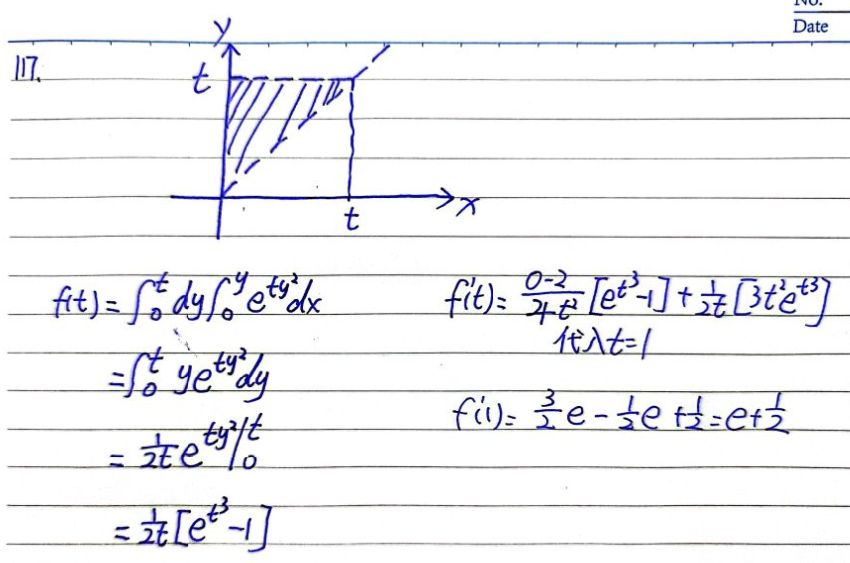 No.
Date
117.
y
t
x
t
f(t)=∫₀ᵗdy∫₀ʸe^{ty²}dx
=∫₀ᵗ ye^{ty²}dy
= 1/2t e^{ty²}|₀ᵗ
= 1/2t[e^{t³}-1]
f'(t)= (0-2)/(4t²) [e^{t³}-1] + 1/2t [3t²e^{t³}]
代入t=1
f'(1)= 3/2 e - 1/2 e + 1/2 = e + 1/2